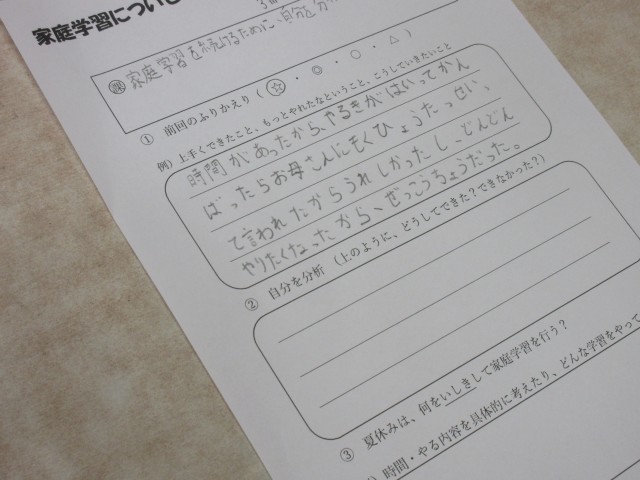 家庭学習につい
課 家庭学習を続けるために、自分を分
① 前回のふりかえり（☆・◎・○・△）
例）上手くできたこと、もっとやれたなということ、こうしていきたいこと
時間があったから、やるきがはいってかん
ばったらお母さんにもくひょうたっせい、
て言われたからうれしかったし、どんどん
やりたくなったから、ぜっこうちょうだった。
② 自分を分析（上のように、どうしてできた？できなかった？）
③ 夏休みは、何をいしきして家庭学習を行う？
）時間・やる内容を具体的に考えたり、どんな学習をやって